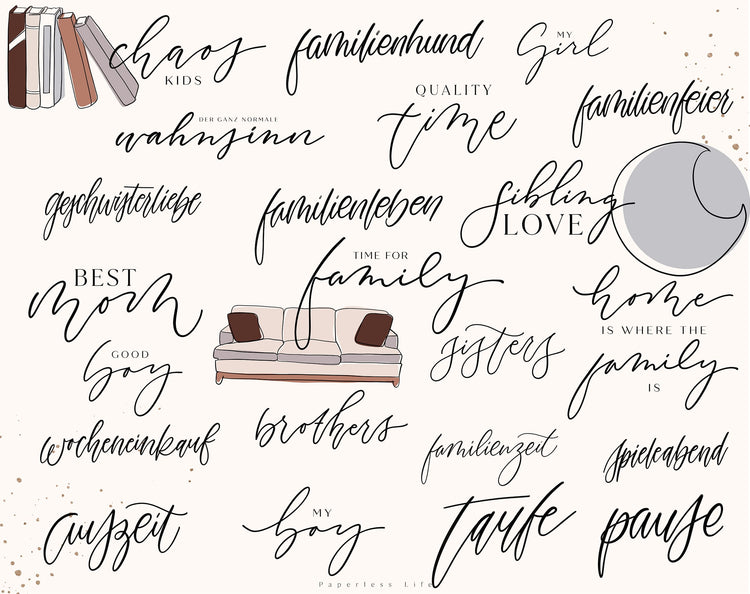 chaos
KIDS
familienhund
MY
Girl
DER GANZ NORMALE
wahnsinn
QUALITY
time
familienfeier
geschwisterliebe
familienleben
sibling
LOVE
BEST
mom
TIME FOR
family
home
IS WHERE THE
family
IS
GOOD
boy
sisters
wocheneinkauf
brothers
familienzeit
spieleabend
auszeit
MY
boy
Taufe
pause
Paperless Life